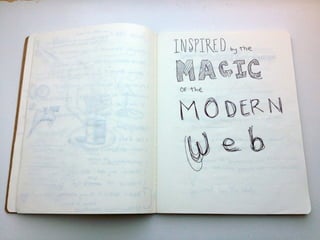 INSPIRED by the
MAGIC
OF the
MODERN
Web